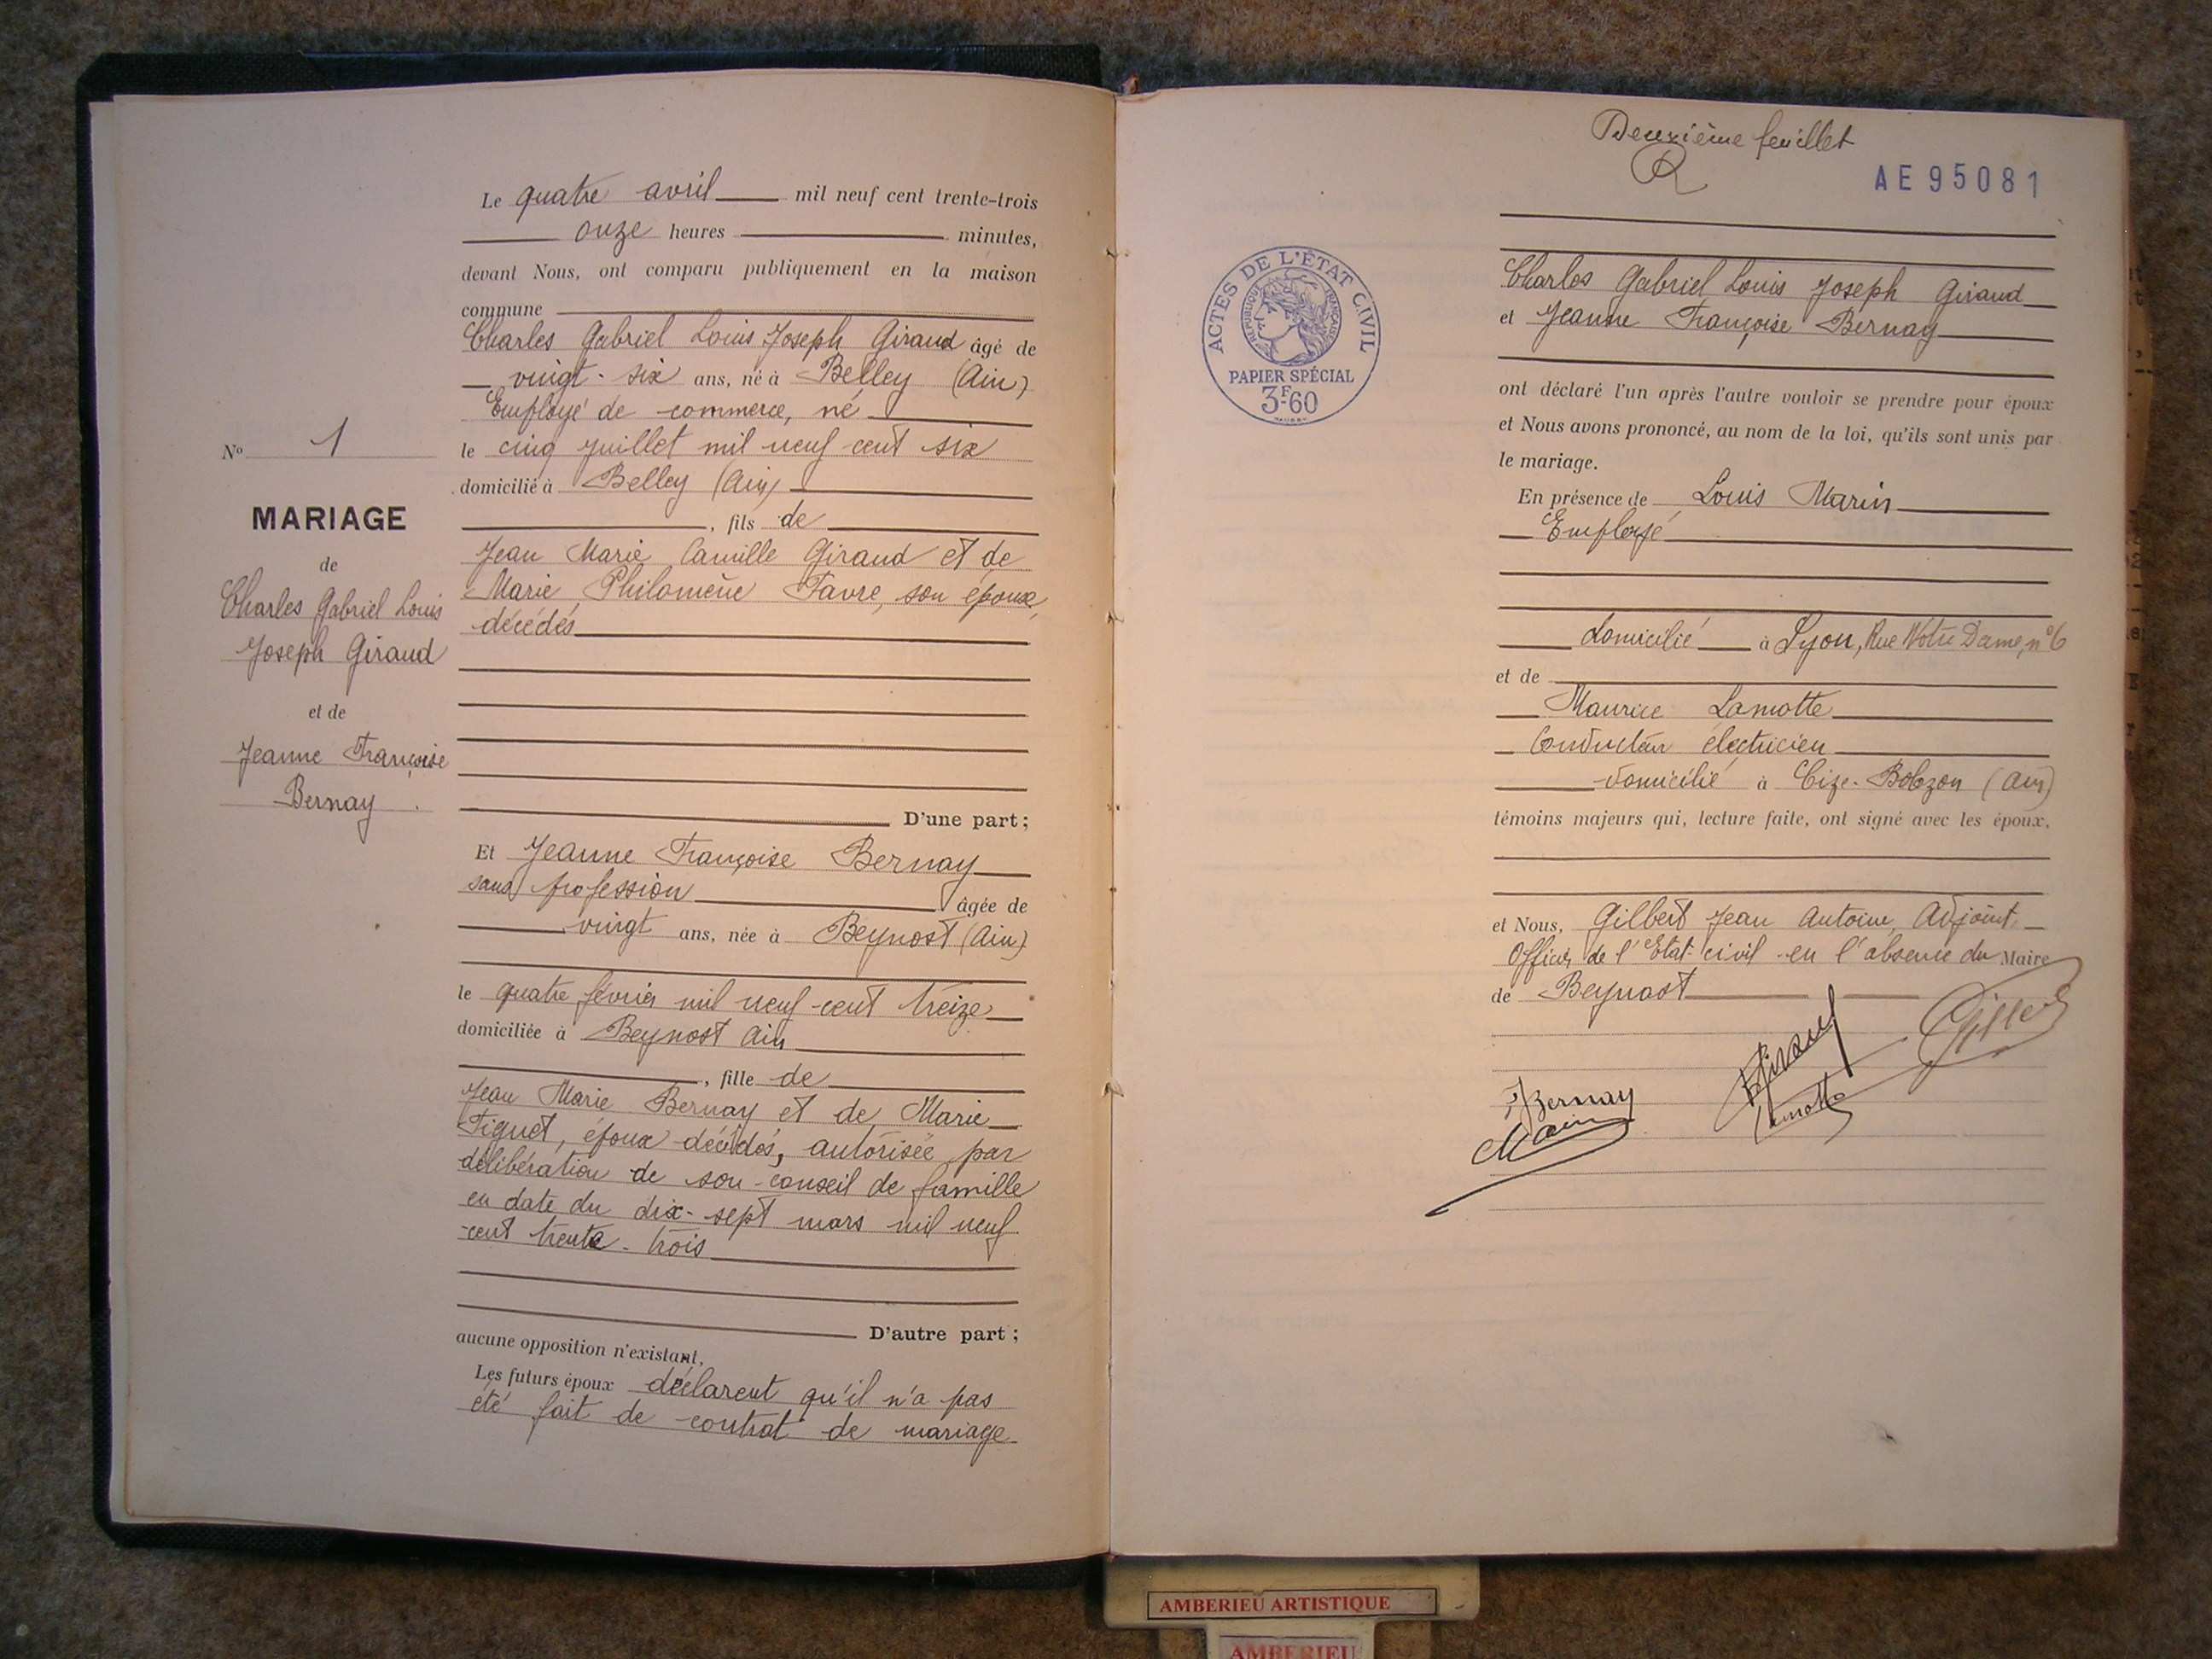 Le quatre avril mil neuf cent trente-trois
onze heures minutes,
devant Nous, ont comparu publiquement en la maison
commune
Charles Gabriel Louis Joseph Giraud âgé de
vingt-six ans, né à Belley (Ain)
Employé de commerce, né
le cinq juillet mil neuf cent six
domicilié à Belley (Ain)
, fils de
Jean Marie Camille Giraud et de
Marie Philomène Favre, son épouse,
décédés
No 1
MARIAGE
de
Charles Gabriel Louis
Joseph Giraud
et de
Jeanne Françoise
Bernay.
D'une part ;
Et Jeanne Françoise Bernay
sans profession âgée de
vingt ans, née à Beynost (Ain)
le quatre février mil neuf cent treize
domiciliée à Beynost Ain
, fille de
Jean Marie Bernay et de Marie
Figuet, époux décédés, autorisée par
délibération de son conseil de famille
en date du dix-sept mars mil neuf
cent trente-trois
D'autre part ;
aucune opposition n'existant,
Les futurs époux déclarent qu'il n'a pas
été fait de contrat de mariage
Deuxième feuillet
AE95081
ACTES DE L'ÉTAT CIVIL
RÉPUBLIQUE FRANÇAISE
PAPIER SPÉCIAL
3F60
Charles Gabriel Louis Joseph Giraud
et Jeanne Françoise Bernay
ont déclaré l'un après l'autre vouloir se prendre pour époux
et Nous avons prononcé, au nom de la loi, qu'ils sont unis par
le mariage.
En présence de Louis Marin
Employé
domicilié à Lyon, Rue Notre Dame, n°6
et de
Maurice Lamotte
Conducteur électricien
domicilié à Cize-Bolozon (Ain)
témoins majeurs qui, lecture faite, ont signé avec les époux,
et Nous, Gilbert Jean Antoine, Adjoint
Officier de l'Etat-civil en l'absence du Maire
de Beynost
Giraud Gilbert
J Bernay Lamotte
Marin
AMBERIEU ARTISTIQUE
AMBERIEU